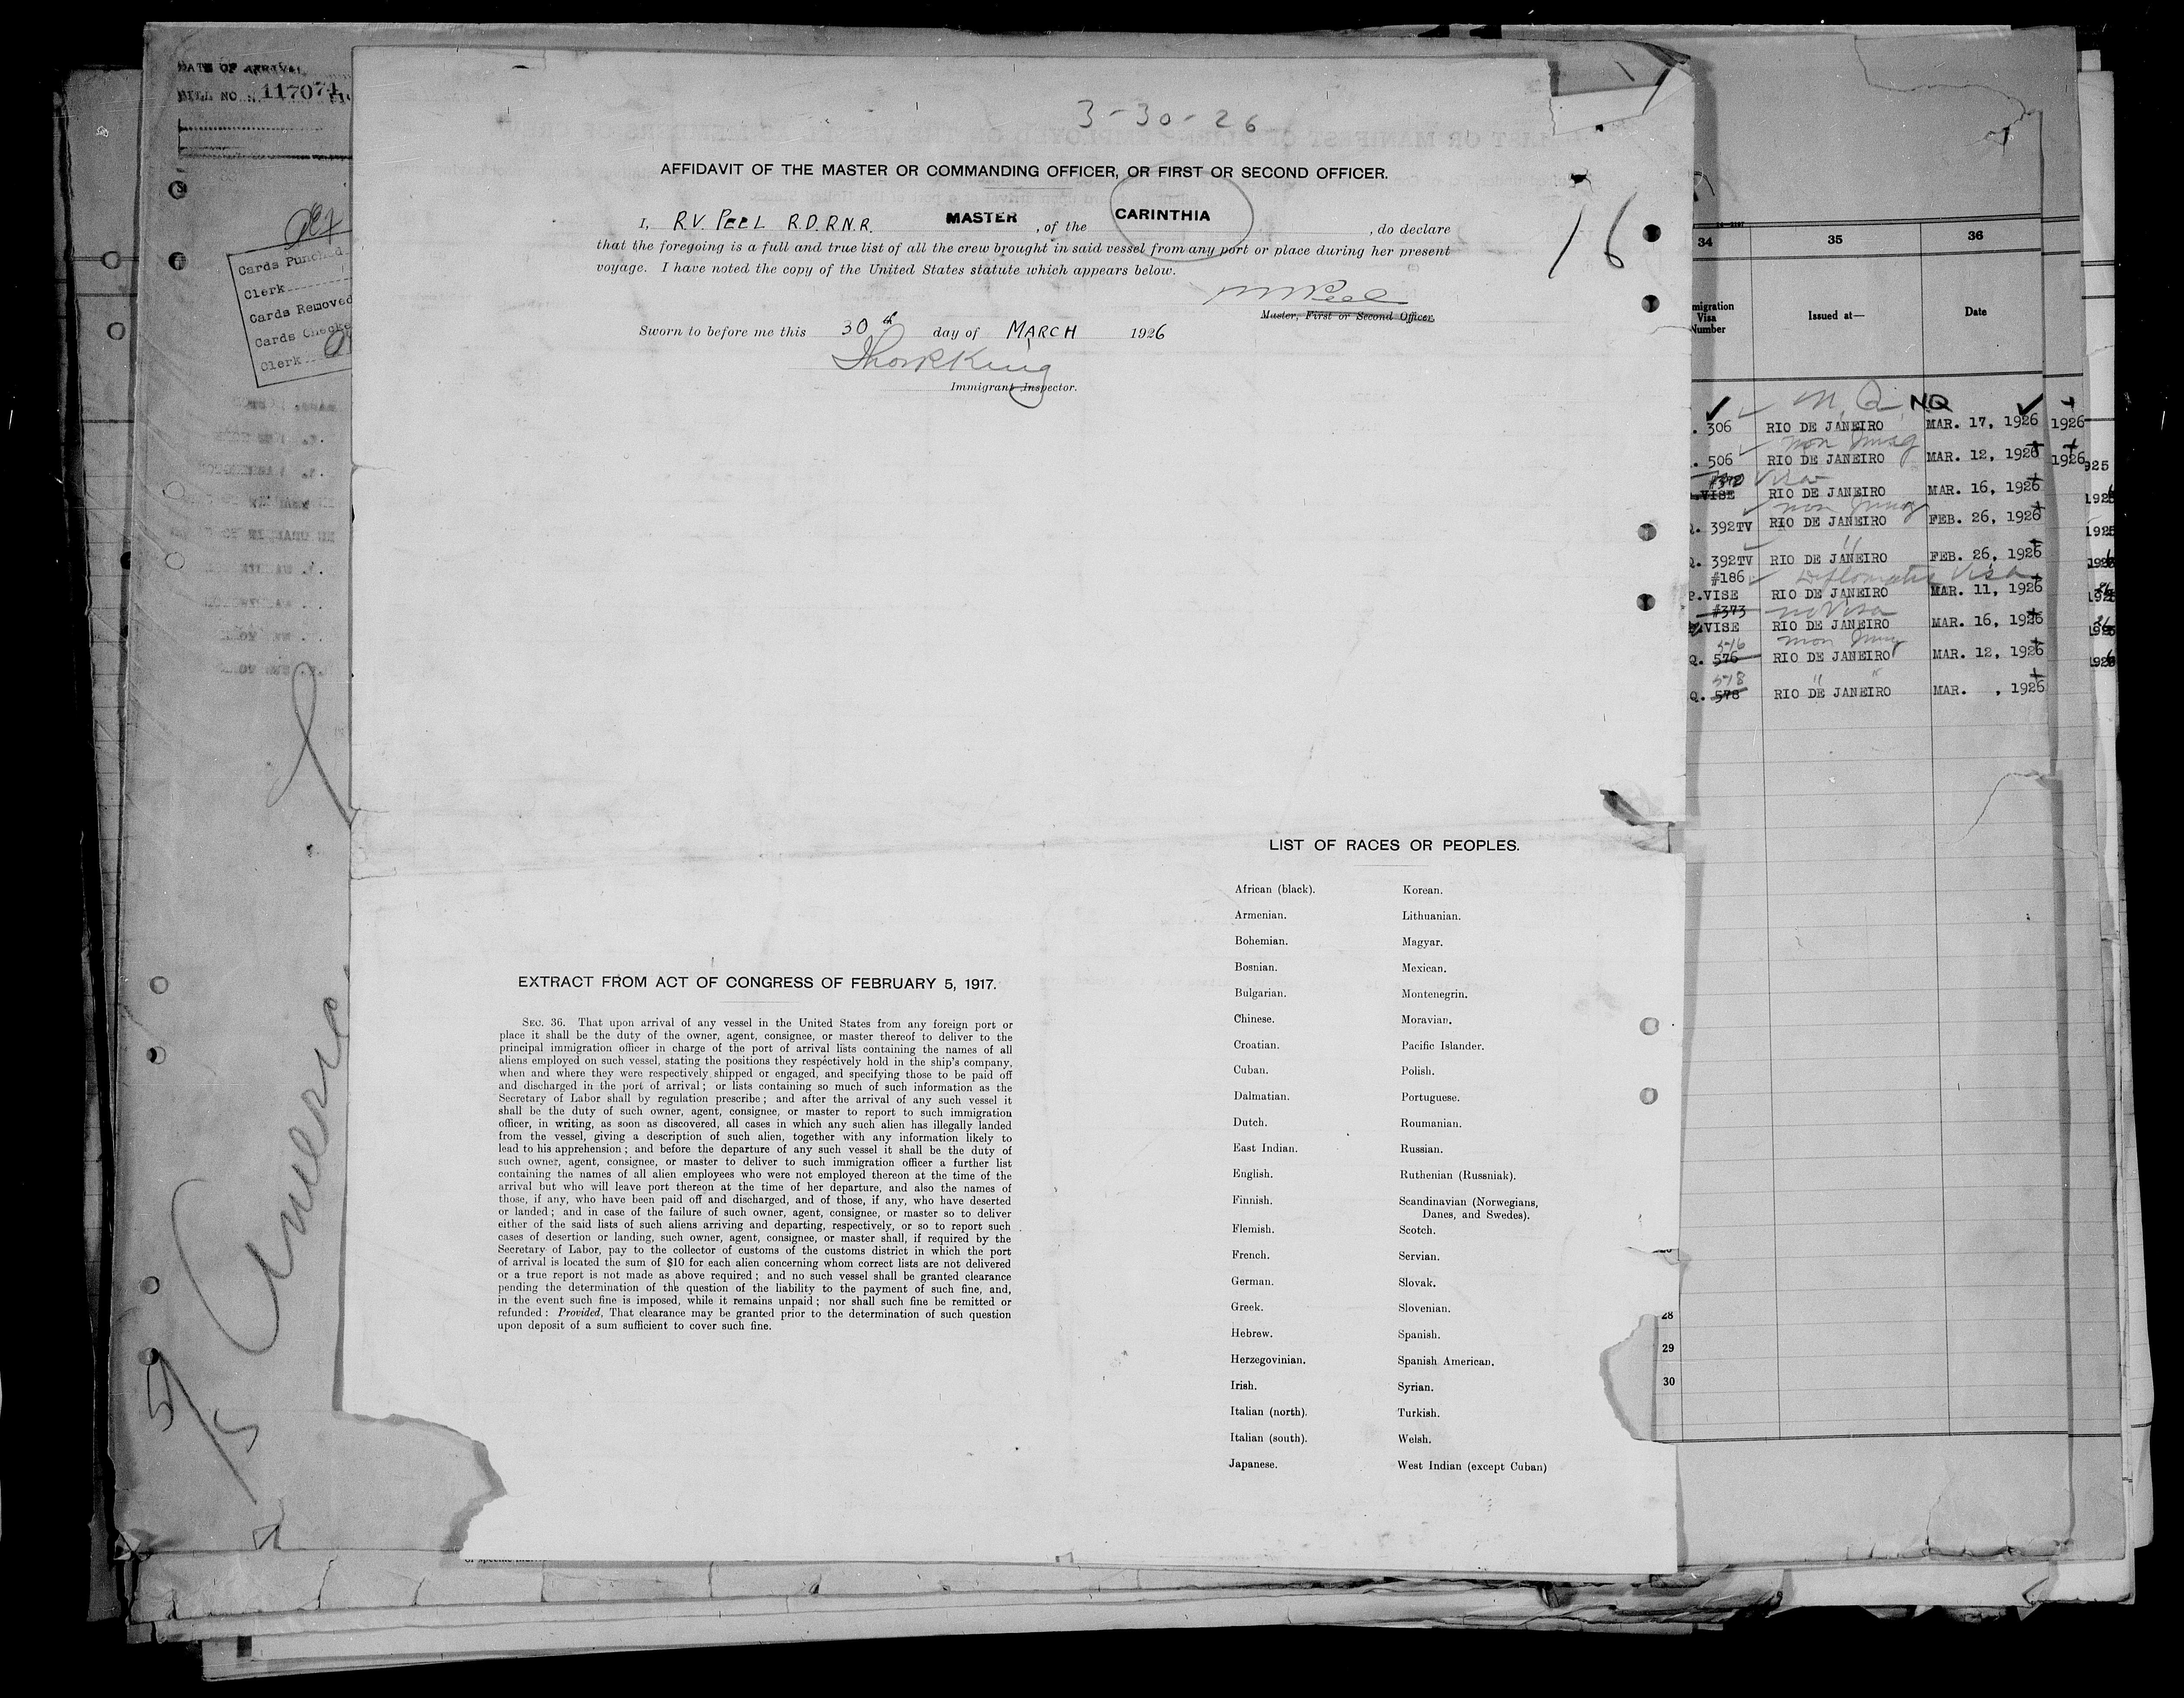 DATE OF ARRIVAL
BILL NO. 117074
Cards Punched
Clerk
Cards Removed
Cards Checke
Clerk
America
5/5
3-30-26
AFFIDAVIT OF THE MASTER OR COMMANDING OFFICER, OR FIRST OR SECOND OFFICER.
I, R.V. PEEL R.D.R.N.R. MASTER, of the CARINTHIA, do declare
that the foregoing is a full and true list of all the crew brought in said vessel from any port or place during her present
voyage. I have noted the copy of the United States statute which appears below.
16
Master, First or Second Officer.
Sworn to before me this 30th day of MARCH 1926
Immigrant Inspector.
LIST OF RACES OR PEOPLES.
African (black). Korean.
Armenian. Lithuanian.
Bohemian. Magyar.
Bosnian. Mexican.
Bulgarian. Montenegrin.
Chinese. Moravian.
Croatian. Pacific Islander.
Cuban. Polish.
Dalmatian. Portuguese.
Dutch. Roumanian.
East Indian. Russian.
English. Ruthenian (Russniak).
Finnish. Scandinavian (Norwegians,
Danes, and Swedes).
Flemish. Scotch.
French. Servian.
German. Slovak.
Greek. Slovenian.
Hebrew. Spanish.
Herzegovinian. Spanish American.
Irish. Syrian.
Italian (north). Turkish.
Italian (south). Welsh.
Japanese. West Indian (except Cuban)
EXTRACT FROM ACT OF CONGRESS OF FEBRUARY 5, 1917.
SEC. 36. That upon arrival of any vessel in the United States from any foreign port or
place it shall be the duty of the owner, agent, consignee, or master thereof to deliver to the
principal immigration officer in charge of the port of arrival lists containing the names of all
aliens employed on such vessel, stating the positions they respectively hold in the ship's company,
when and where they were respectively shipped or engaged, and specifying those to be paid off
and discharged in the port of arrival; or lists containing so much of such information as the
Secretary of Labor shall by regulation prescribe; and after the arrival of any such vessel it
shall be the duty of such owner, agent, consignee, or master to report to such immigration
officer, in writing, as soon as discovered, all cases in which any such alien has illegally landed
from the vessel, giving a description of such alien, together with any information likely to
lead to his apprehension; and before the departure of any such vessel it shall be the duty of
such owner, agent, consignee, or master to deliver to such immigration officer a further list
containing the names of all alien employees who were not employed thereon at the time of the
arrival but who will leave port thereon at the time of her departure, and also the names of
those, if any, who have been paid off and discharged, and of those, if any, who have deserted
or landed; and in case of the failure of such owner, agent, consignee, or master so to deliver
either of the said lists of such aliens arriving and departing, respectively, or so to report such
cases of desertion or landing, such owner, agent, consignee, or master shall, if required by the
Secretary of Labor, pay to the collector of customs of the customs district in which the port
of arrival is located the sum of $10 for each alien concerning whom correct lists are not delivered
or a true report is not made as above required; and no such vessel shall be granted clearance
pending the determination of the question of the liability to the payment of such fine, and,
in the event such fine is imposed, while it remains unpaid; nor shall such fine be remitted or
refunded: Provided, That clearance may be granted prior to the determination of such question
upon deposit of a sum sufficient to cover such fine.
34 35 36
migration
Visa
Number
Issued at—
Date
NQ
306 RIO DE JANEIRO MAR. 17, 1926 1926
506 RIO DE JANEIRO MAR. 12, 1926 1926
VISE RIO DE JANEIRO MAR. 16, 1926
Q. 392TV RIO DE JANEIRO FEB. 26, 1926
Q. 392TV RIO DE JANEIRO FEB. 26, 1926
#186 Diplomatic Visa
P.VISE RIO DE JANEIRO MAR. 11, 1926
#373 no Visa
VISE RIO DE JANEIRO MAR. 16, 1926
Q. 576 RIO DE JANEIRO MAR. 12, 1926
578
Q. 578 RIO DE JANEIRO MAR. , 1926
28
29
30